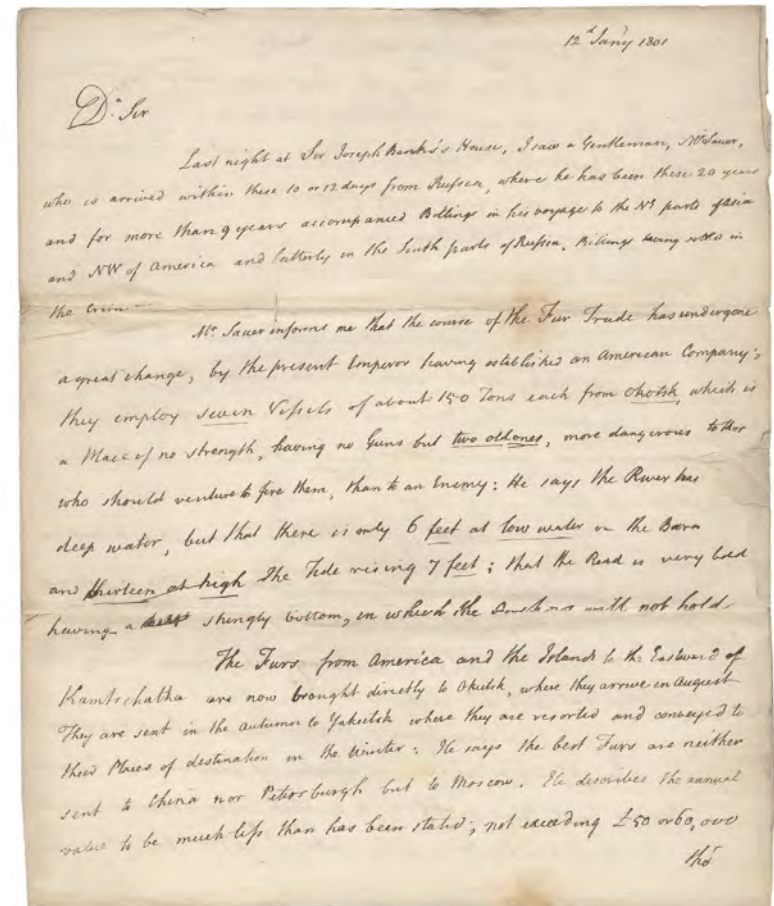 12th Jany 1801
Dr Sir
Last night at Sir Joseph Banks's House, I saw a Gentleman, Mr Sauer,
who is arrived within these 10 or 12 days from Russia, where he has been these 20 years
and for more than 9 years accompanied Billings in his voyage to the NE parts of asia
and NW of America and latterly in the South parts of Russia, Billings having settled in
the Crim
Mr Sauer informs me that the course of the Fur Trade has undergone
a great change, by the present Emperor having established an American Company;
they employ seven Vessels of about 150 Tons each from Okotsk, which is
a Place of no strength, having no Guns but two old ones, more dangerous to those
who should venture to fire them, than to an Enemy: He says the River has
deep water, but that there is only 6 feet at low water on the Barr
and thirteen at high The Tide rising 7 feet; that the Road is very bad
having a shingly bottom, in which the will not hold
The Furs from America and the Islands to the Eastward of
Kamtschatka are now brought directly to Okotsk, where they arrive in August
They are sent in the Autumn to Yakutsk where they are resorted and conveyed to
their Places of destination in the Winter: He says the best Furs are neither
sent to China nor Petersburgh but to Moscow. He describes the annual
value to be much less than has been stated; not exceeding £50 or 60,000
tho'